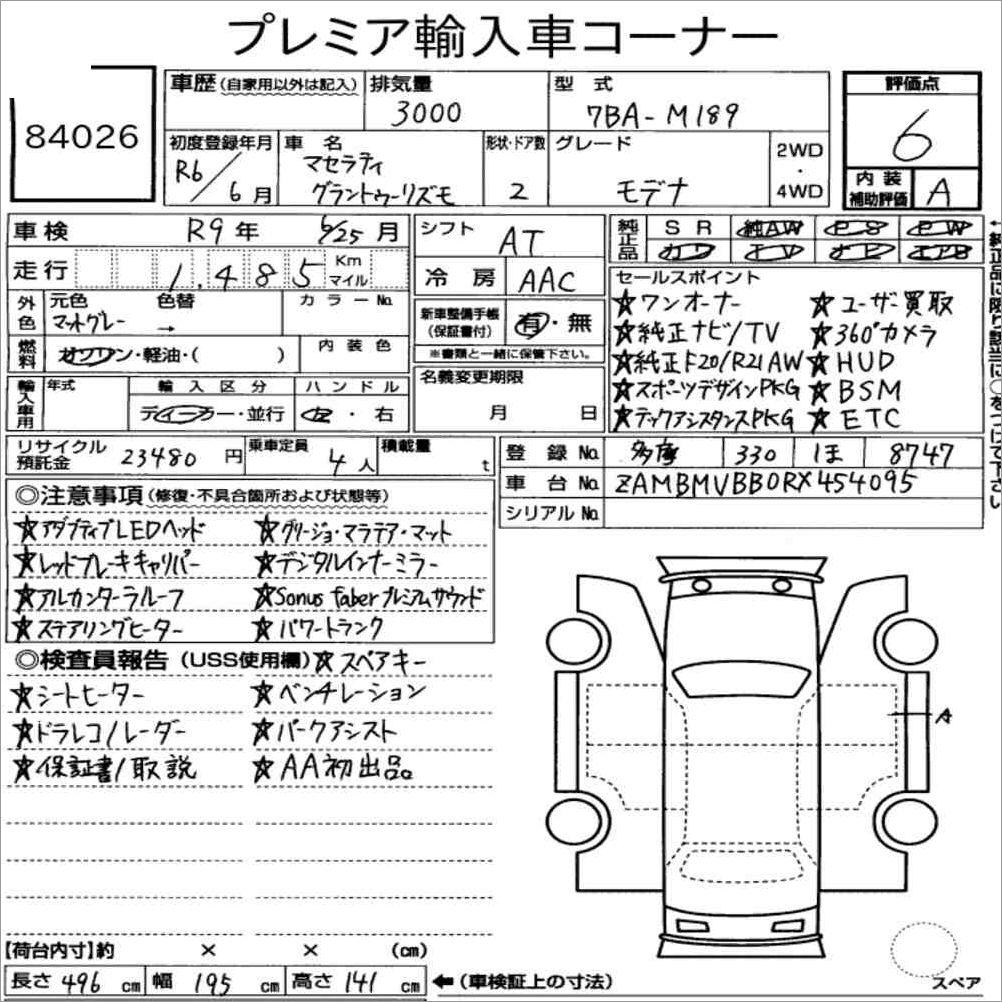 プレミア輸入車コーナー
84026
車歴(自家用以外は記入)
排気量 3000
型式 7BA-M189
評価点 6
初度登録年月 R6/6月
車名 マセラティ
グラントゥーリズモ
形状・ドア数 2
グレード モデナ
2WD
・
4WD
内装
補助評価 A
車検 R9年 6/25月
シフト AT
純正品 SR 純AW PS PW
カワ TV ナビ エアB
走行 1,485 Km
マイル
冷房 AAC
外色 元色 マットグレー 色替 → カラーNo.
新車整備手帳
(保証書付) 有・無
※書類と一緒に保管下さい。
燃料 ガソリン・軽油・( )
内装色
名義変更期限
月 日
輸入車用 年式 輸入区分 ハンドル
ディーラー・並行 左・右
セールスポイント
☆ワンオーナー ☆ユーザー買取
☆純正ナビ/TV ☆360°カメラ
☆純正F20/R21AW ☆HUD
☆スポーツデザインPKG ☆BSM
☆テックアシスタンスPKG ☆ETC
←純正品に限り該当に○をつけて下さい
リサイクル
預託金 23480円
乗車定員 4人
積載量 t
登録No. 多摩 330 1ま 8747
車台No. ZAMBMVBB0RX454095
シリアルNo.
◎注意事項(修復・不具合箇所および状態等)
☆アダプティブLEDヘッド ☆グリージョ・マラテア・マット
☆レッドブレーキキャリパー ☆デジタルインナーミラー
☆アルカンターラルーフ ☆Sonus faberプレミアムサウンド
☆ステアリングヒーター ☆パワートランク
◎検査員報告(USS使用欄)☆スペアキー
☆シートヒーター ☆ベンチレーション
☆ドラレコ/レーダー ☆パークアシスト
☆保証書/取説 ☆AA初出品。
A
【荷台内寸】約 × × (cm)
長さ 496 cm 幅 195 cm 高さ 141 cm ←(車検証上の寸法)
スペア